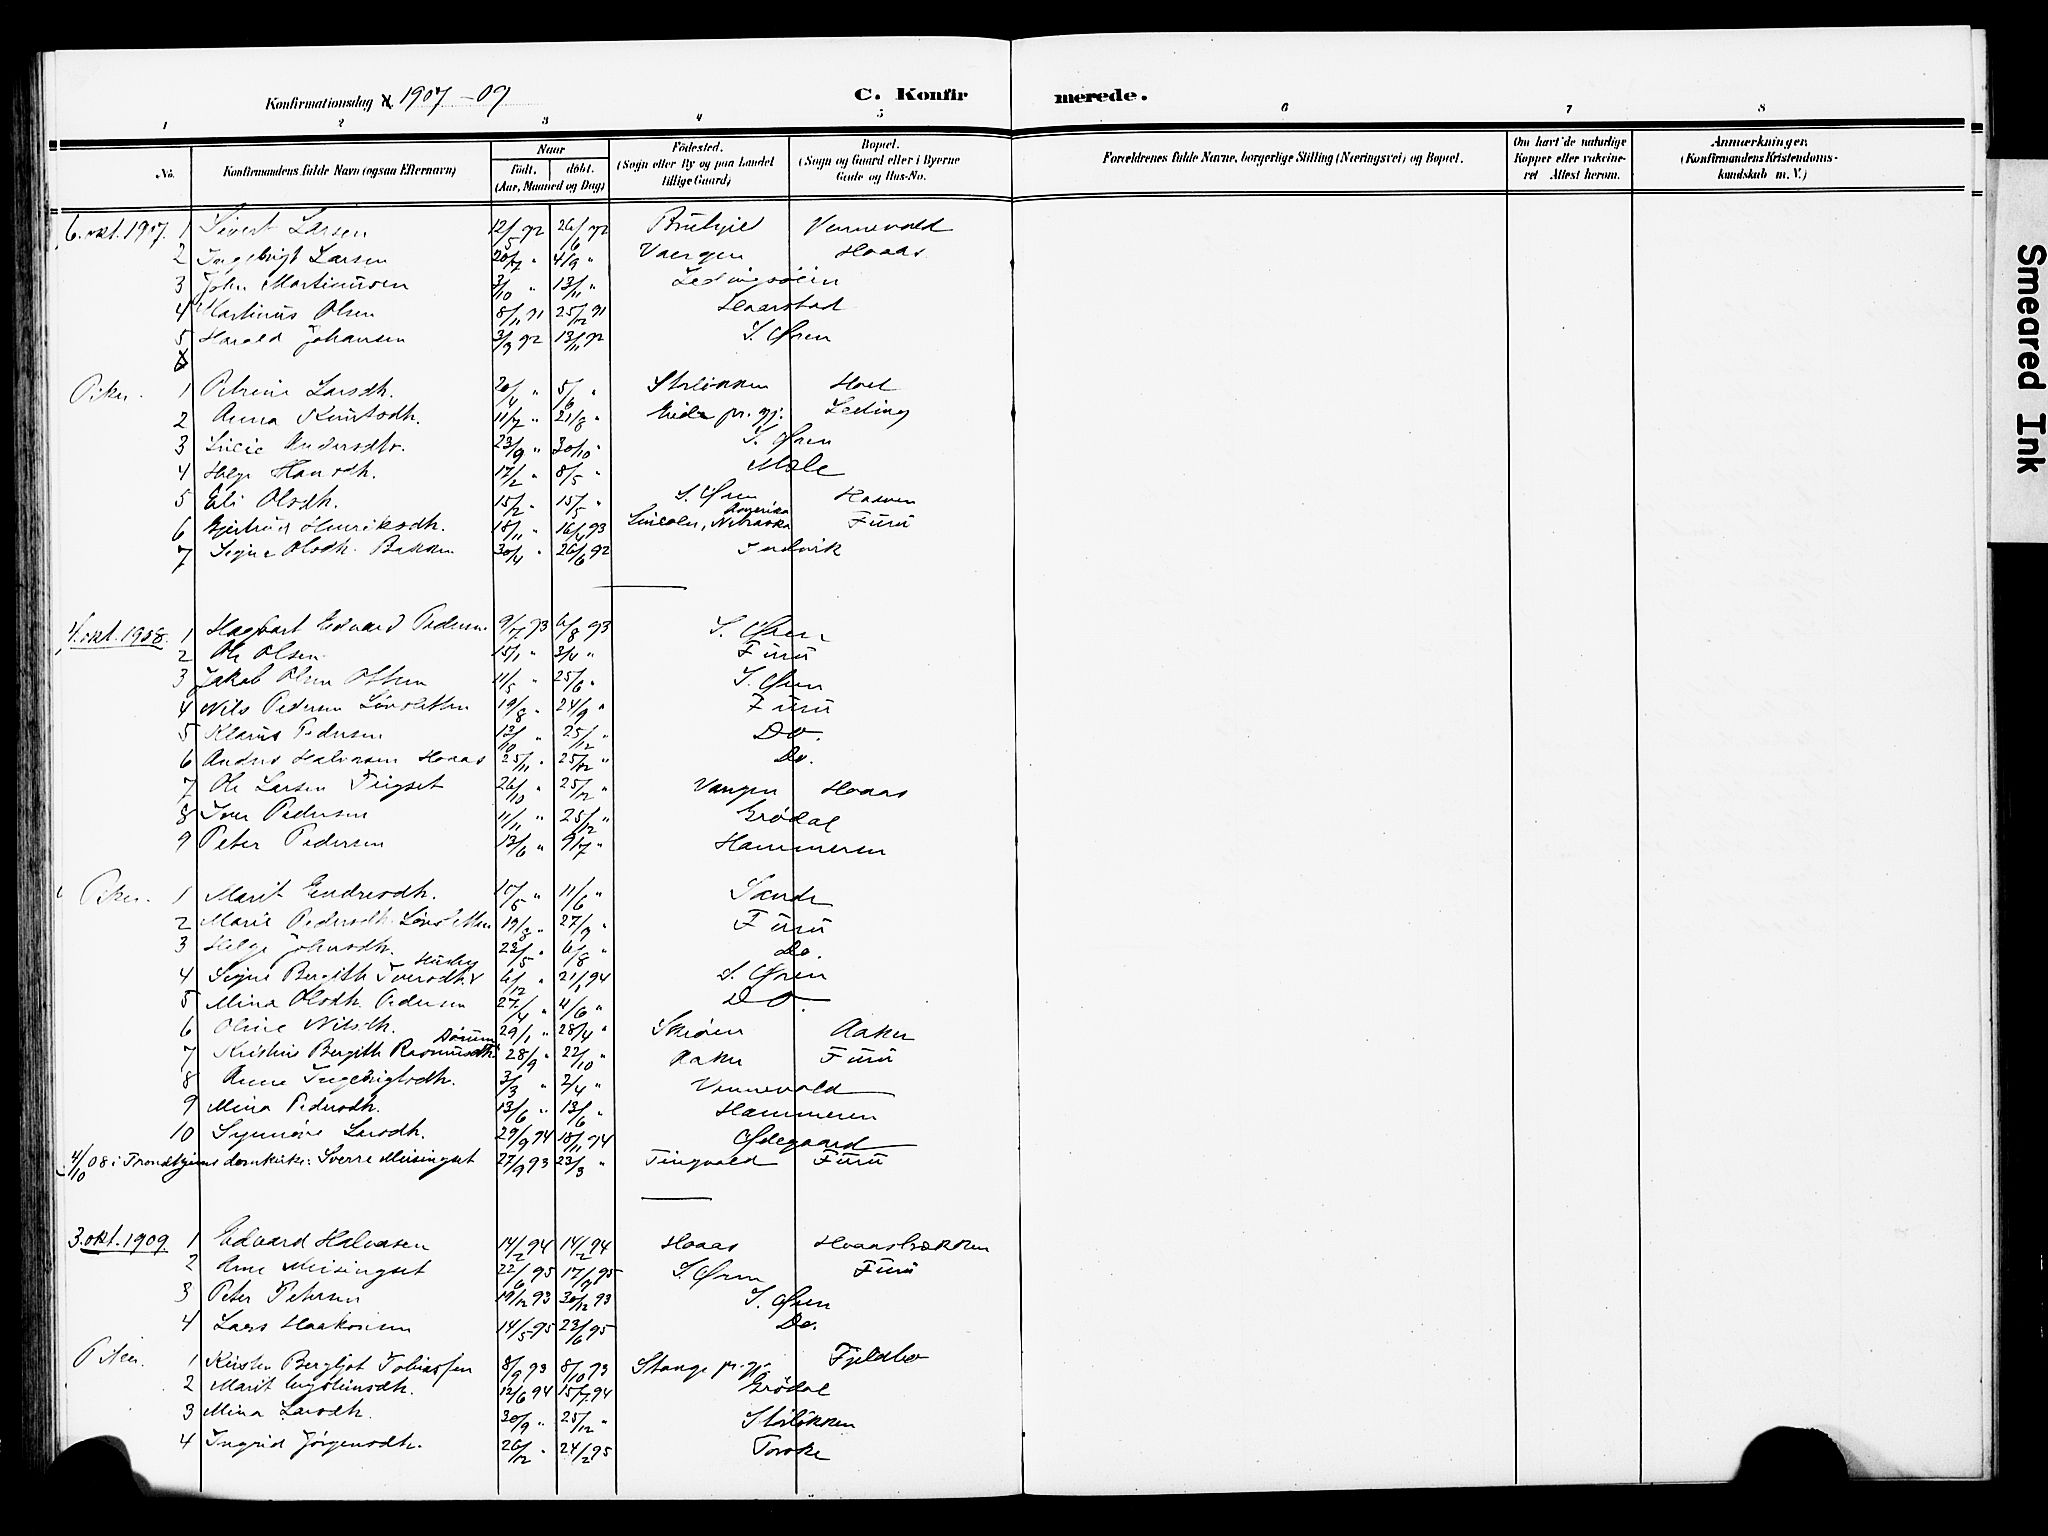 Konfirmationsdag 1907-09
C. Konfirmerede.
1 2 3 4 5 6 7 8
No.
Konfirmandens fulde Navn (ogsaa Efternavn)
Naar
født, døbt.
(Aar, Maaned og Dag)
Fødested.
(Sogn eller By og paa Landet
tillige Gaard)
Bopæl.
(Sogn og Gaard eller i Byerne
Gade og Hus-No.
Forældrenes fulde Navne, borgerlige Stilling (Næringsvei) og Bopæl.
Om havt de naturlige
Kopper eller vakcine-
ret Attest herom.
Anmærkninger.
(Konfirmandens Kristendoms-
kundskab m. V.)
6. okt. 1907. 1 Sivert Larsen 12/5 92 26/6 92 Vennevold
2 Ingebrigt Larsen 20/7 " 4/9 " Haas
3 John Martinusen 3/10 " 13/11 " Ledingsøien
4 Martinus Olsen 8/11 91 25/12 91
5 Harald Johansen 3/9 92 13/11 92 S. Øren
Piker. 1 Petrine Larsdtr. 20/4 " 5/6 " Storløkken Hoel
2 Anna Knutsdtr. 11/7 " 21/8 " Eide pr. gj. Leding
3 Lucie Andersdtr. 23/9 " 30/10 " S. Øren
4 Helge Hansdtr. 17/2 " 8/5 " Mæle
5 Eli Olsdtr. 15/2 " 15/5 " S. Øren Haaven
6 Gjertrud Henriksdtr. 18/11 " 16/4 93 Lincoln, Nebraska Amerika Furu
7 Signe Olsdtr. Bakken 30/4 " 26/6 92
4. okt. 1908. 1 Hagbart Edvard Pedersen 9/7 93 6/8 93 S. Øren
2 Ole Olsen 15/1 " 3/4 " Furu
3 Jakob Olsen 11/5 " 25/6 " S. Øren
4 Nils Pedersen Løvsletten 19/8 " 24/9 " Furu
5 Klaus Pedersen 12/10 " 25/12 " Do.
6 Anders Halvorsen Hoaas 25/11 " 25/12 " Do.
7 Ole Larsen Tingset 26/10 " 25/12 " Vangen Hoaas
8 Iver Pedersen 11/11 " 25/12 " Grødal
9 Peter Pedersen 13/6 " 9/7 " Hammeren
Piker. 1 Marit Endresdtr. 15/5 " 11/6 " Sande
2 Marie Pedersdtr. Løvsletten 19/8 " 27/9 " Furu
3 Helge Johnsdtr. 23/5 " 6/8 " Do.
4 Signe Bergith Iversdtr. Husby 6/12 " 21/1 94 S. Øren
5 Mina Olsdtr. Pedersen 27/4 " 4/6 " Do.
6 Oline Nilsdtr. 29/1 " 28/4 " Skrøen Aaker
7 Kristine Bergith Rasmusdtr. Dørum 28/9 " 22/10 " Aaker Furu
8 Anne Ingebrigtsdtr. 3/3 " 2/4 " Vennevold
9 Mina Pedersdtr. 13/6 " 13/6 " Hammeren
10 Synnøve Larsdtr. 29/9 94 18/11 94 Ødegaard
4/10 08 i Trondhjems domkirke: Sverre Meisingset 27/9 93 23/3 " Tingvold Furu
3. okt. 1909. 1 Edvard Halvorsen 14/2 94 14/2 94 Hoaas Hoaasbakken
2 Arne Meisingset 22/6 95 17/9 95 S. Øren Furu
3 Peter Petersen 19/12 93 30/12 93 S. Øren
4 Lars Haakonsen 14/5 95 23/6 95 Do.
Piker. 1 Kirsten Bergljot Tobiassen 8/9 93 8/10 93 Stange pr. gj. Fjeldbo
2 Marit Eysteinsdtr. 12/6 94 15/7 94 Grødal
3 Mina Larsdtr. 30/9 " 25/12 " Storløkken
4 Ingrid Jørgensdtr. 26/12 " 24/2 95 Torske
Smeared Ink